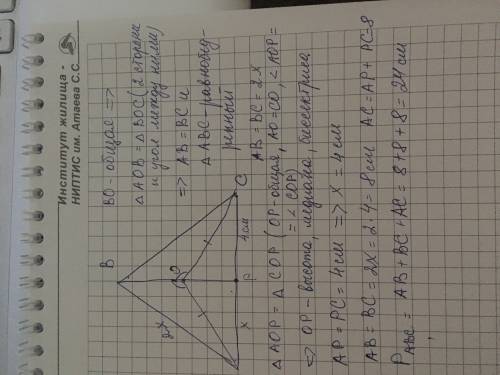 Институт жилища -
НИПТИС им. Атаева С.С.
BO - общая =>
△AOB = △BOC (2 стороны
и угол между ними)
=> AB = BC и
△ABC - равнобед-
ренный
AB = BC = 2x
B
O
2x
C
P
x
4см
△AOP = △COP (OP - общая, AO = CO, ∠AOP =
= ∠COP)
=> OP - высота, медиана, биссектриса
AP = PC = 4 см => x = 4 см
AB = BC = 2x = 2·4 = 8 см AC = AP + PC = 8
P ABC = AB + BC + AC = 8 + 8 + 8 = 24 см